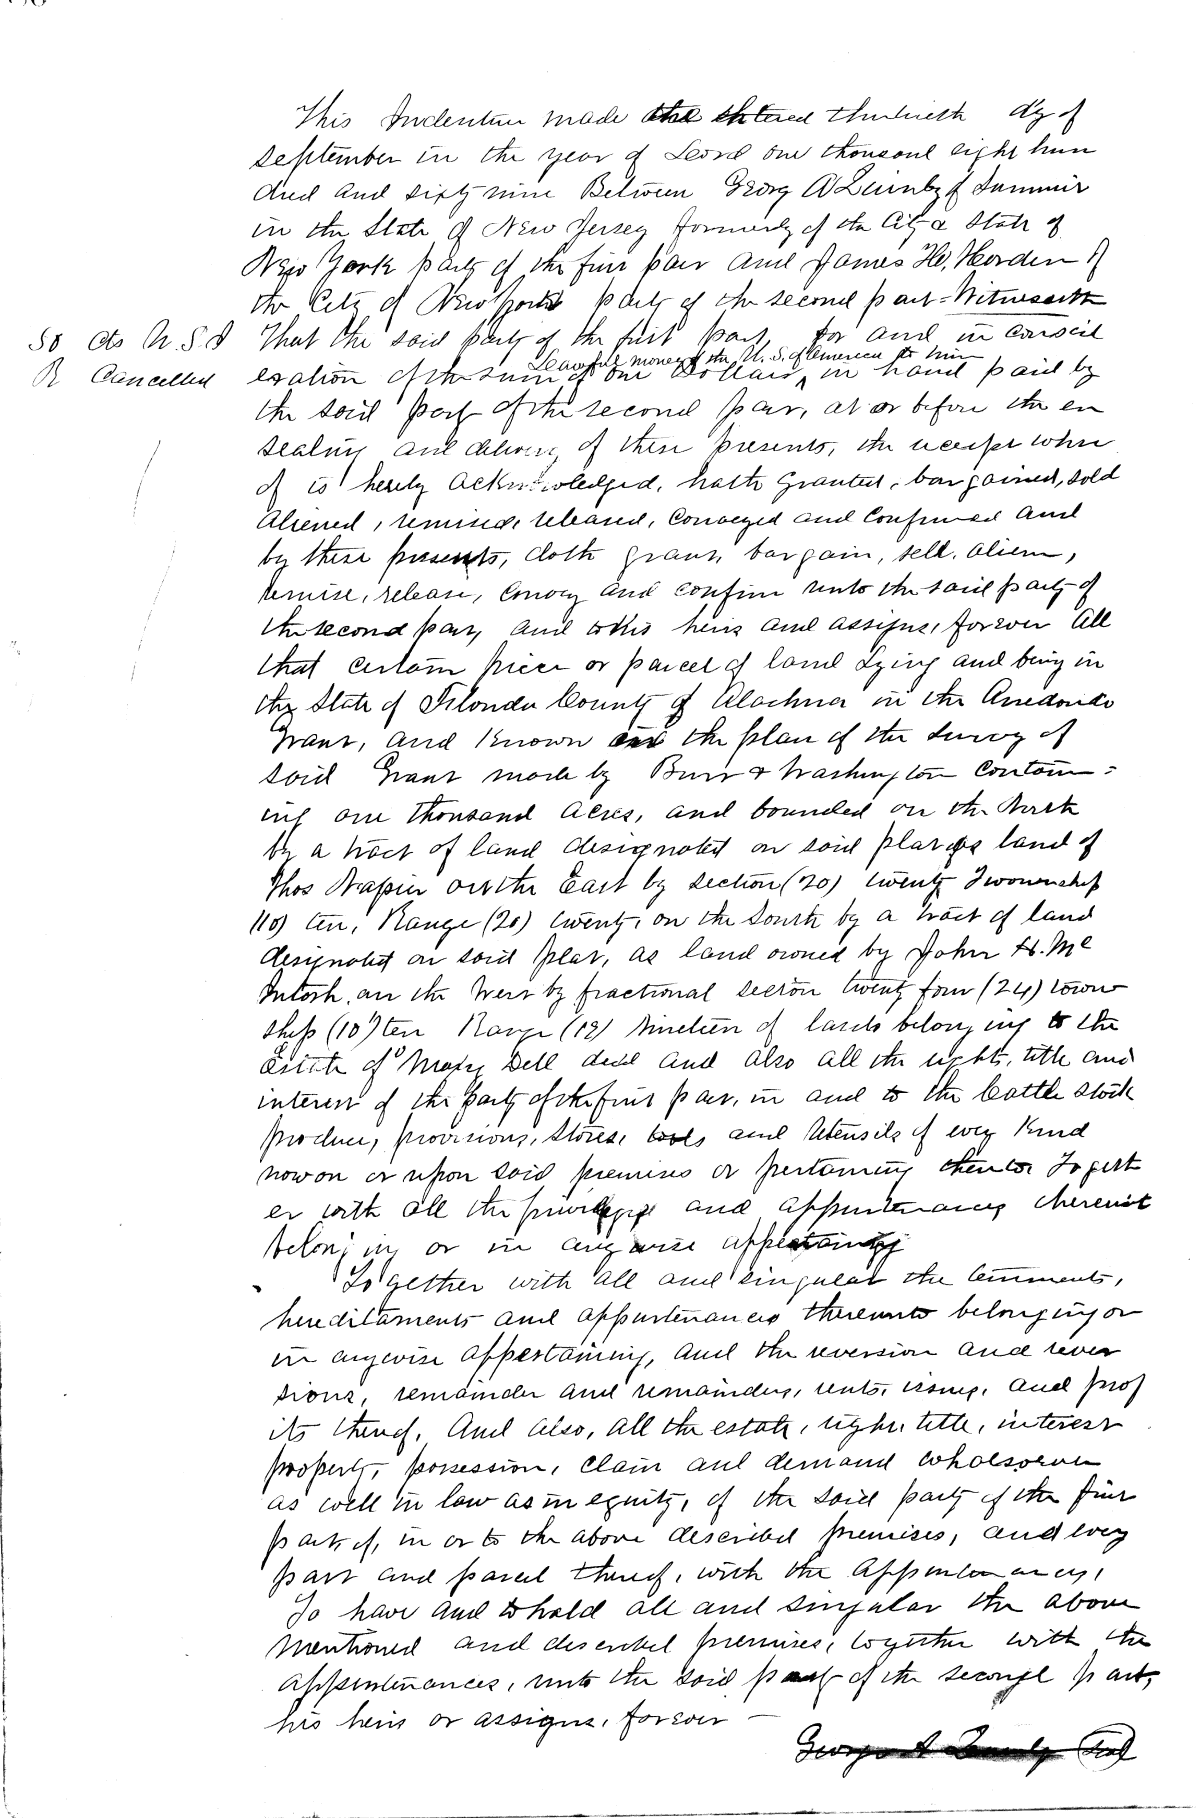 This Indenture made the thirtieth day of
September in the year of Leord one thousand eight hun
dred and sixty nine Between Georg A Quimby of Summit
in the State of New Jersey formerly of the City & State of
New York party of the first part and James H. Horden of
the City of New York party of the second part = Witnesseth
50 cts U.S.I That the said party of the first part, for and in consid
R Cancelled eration of the sum of one Dollars, in hand paid by
Lawful money of the U.S. of America to him
the said party of the second part, at or before the en
sealing and delivery of these presents, the receipt where
of is hereby acknowledged, hath granted, bargained, sold
aliened, remised, released, conveyed and confirmed and
by these presents, doth grant, bargain, sell, alien,
remise, release, convey and confirm unto the said party of
the second part, and to his heirs and assigns, forever All
that certain piece or parcel of land Lying and being in
the State of Florida County of Alachua in the Arredondo
Grant, and Known on the plan of the survey of
said Grant made by Burr & Washington contain=
ing one thousand acres, and bounded on the North
by a tract of land designated on said plat as land of
Thos Napier on the East by section (20) twenty Township
(10) ten, Range (20) twenty, on the South by a tract of land
designated on said plat, as land owned by John H. Mc
Intosh, on the West by fractional section twenty four (24) town
ship (10) ten Range (19) Nineteen of lands belonging to the
Estate of Mary Dell decd and also all the rights, title and
interest of the party of the first part, in and to the Cattle stock
produce, provisions, stores, tools and Utensils of every Kind
now on or upon said premises or pertaining thereto Togeth
er with all the privileges and appurtenances thereunto
belonging or in any wise appertaining
Together with all and singular the tenements,
hereditaments and appurtenances thereunto belonging or
in anywise appertaining, and the reversion and rever
sions, remainder and remainders, rents, issues, and prof
its thereof. And also, all the estate, right, title, interest
property, possession, claim and demand whatsoever
as well in law as in equity, of the said party of the first
part, of, in or to the above described premises, and every
part and parcel thereof, with the appurtenances,
To have and to hold all and singular the above
mentioned and described premises, together with the
appurtenances, unto the said party of the second part,
his heirs or assigns, forever —
George A Quimby Seal